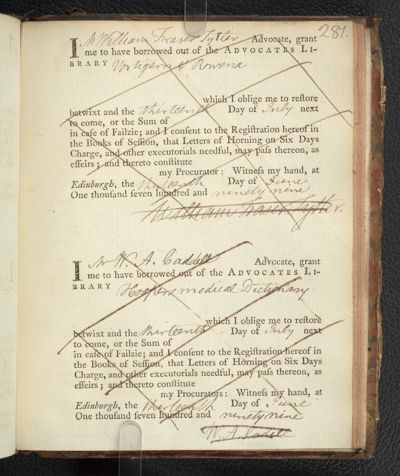 281.
I Mr William Fraser Tytler Advocate, grant
me to have borrowed out of the ADVOCATES LI-
BRARY Vortigern & Rowena
which I oblige me to reſtore
betwixt and the thirteenth Day of July next
to come, or the Sum of
in caſe of Failzie; and I conſent to the Regiſtration hereof in
the Books of Seſſion, that Letters of Horning on Six Days
Charge, and other executorials needful, may paſs thereon, as
effeirs; and thereto conſtitute
my Procurator: Witneſs my hand, at
Edinburgh, the thirteenth Day of June
One thouſand ſeven hundred and ninety nine
William Fraser Tytler.
I Mr W. A. Caddell Advocate, grant
me to have borrowed out of the ADVOCATES LI-
BRARY Hooper's medical Dictionary
which I oblige me to reſtore
betwixt and the thirteenth Day of July next
to come, or the Sum of
in caſe of Failzie; and I conſent to the Regiſtration hereof in
the Books of Seſſion, that Letters of Horning on Six Days
Charge, and other executorials needful, may paſs thereon, as
effeirs; and thereto conſtitute
my Procurators: Witneſs my hand, at
Edinburgh, the thirteenth Day of June
One thouſand ſeven hundred and ninety nine
W. A. Cadell